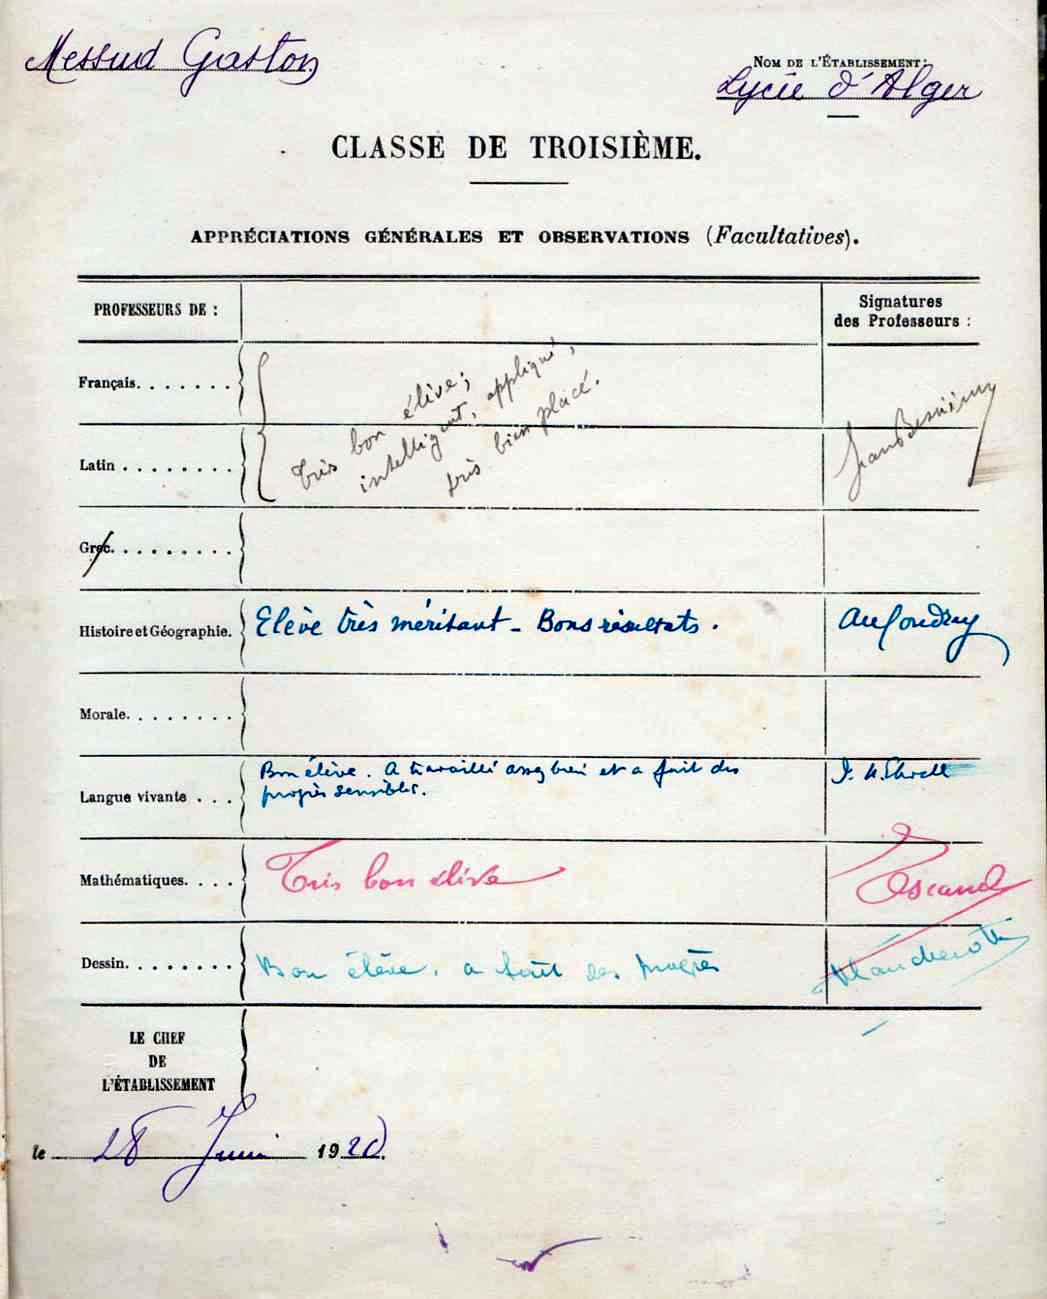 Messud Gaston
NOM DE L'ÉTABLISSEMENT:
Lycée d'Alger
CLASSE DE TROISIÈME.
APPRÉCIATIONS GÉNÉRALES ET OBSERVATIONS (Facultatives).
PROFESSEURS DE :
Signatures
des Professeurs :
Français. . . . . . .
Très bon élève;
intelligent, appliqué,
très bien placé.
Latin . . . . . . . .
Grec. . . . . . . . .
Histoire et Géographie.
Elève très méritant - Bons résultats.
Morale. . . . . . . .
Langue vivante . . .
Bon élève. A travaillé assez bien et a fait des
progrès sensibles.
Mathématiques. . . .
Très bon élève
Dessin. . . . . . . .
Bon élève. a fait des progrès
LE CHEF
DE
L'ÉTABLISSEMENT
le 28 Juin 1920.